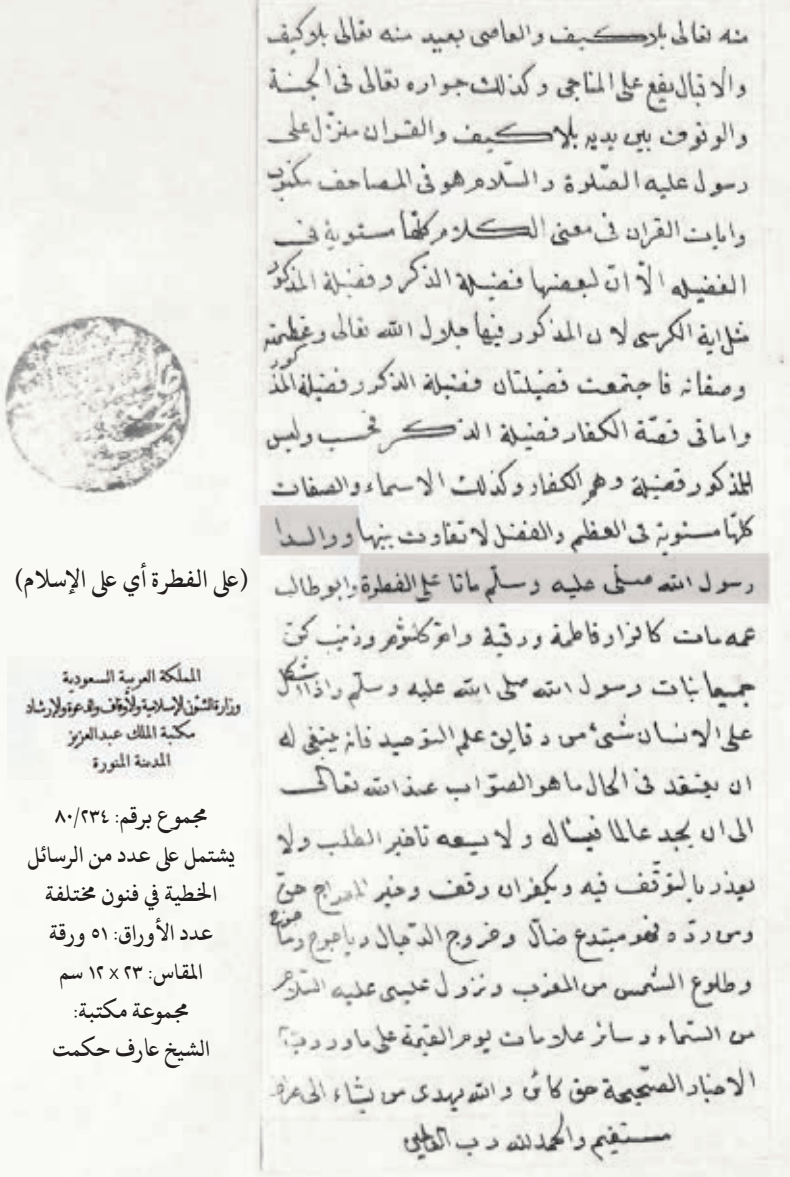 منه تعالى بلاكيف والعاصى بعيد منه تعالى بلاكيف
والاقبال يقع على المناجى وكذلك جواره تعالى فى الجنة
والوقوف بين يديه بلاكيف والقران منزل على
رسول عليه الصّلوة والسّلام هو فى المصاحف مكتوب
وايات القران فى معنى الكلام كلّها مستوية فى
الفضيله الّا انّ لبعضها فضيلة الذكر وفضيلة المذكور
مثل اية الكرسى لان المذكور فيها جلال الله تعالى وعظمته
وصفاته فاجتمعت فضيلتان فضيلة الذكر وفضيلة المذكور
واما فى قصّة الكفار فضيلة الذكر فحسب وليس
للمذكور فضيلة وهم الكفار وكذلك الاسماء والصفات
كلّها مستوية فى العظم والفضل لا تفاوت بينها ووالدا
رسول الله صلّى عليه وسلّم ماتا على الفطرة وابوطالب
عمه مات كافرا وفاطمة ورقية وام كلثوم وزينب كنّ
جميعا بنات رسول الله صلى الله عليه وسلّم واذا اشكل
على الانسان شئ من دقايق علم التوحيد فانه ينبغى له
ان يعتقد فى الحال ما هو الصّواب عند الله تعالى
الى ان يجد عالما فيسأله ولا يسعه تاخير الطلب ولا
يعذر بالتوقّف فيه ويكفر ان وقف وخبر المعراج حقّ
ومن ردّه فهو مبتدع ضالّ وخروج الدّجال وياجوج وماجوج
وطلوع الشّمس من المغرب ونزول عيسى عليه السّلام
من السّماء وسائر علامات يوم القيمة على ما وردت به
الاخبار الصّحيحة حق كائن والله يهدى من يشاء الى صراط
مستقيم والحمد لله رب العالمين
(على الفطرة أي على الإسلام)
المملكة العربية السعودية
وزارة الشئون الإسلامية والأوقاف والدعوة والإرشاد
مكتبة الملك عبدالعزيز
المدينة المنورة
مجموع برقم: ٨٠/٢٣٤
يشتمل على عدد من الرسائل
الخطية في فنون مختلفة
عدد الأوراق: ٥١ ورقة
المقاس: ٢٣ x ١٢ سم
مجموعة مكتبة:
الشيخ عارف حكمت